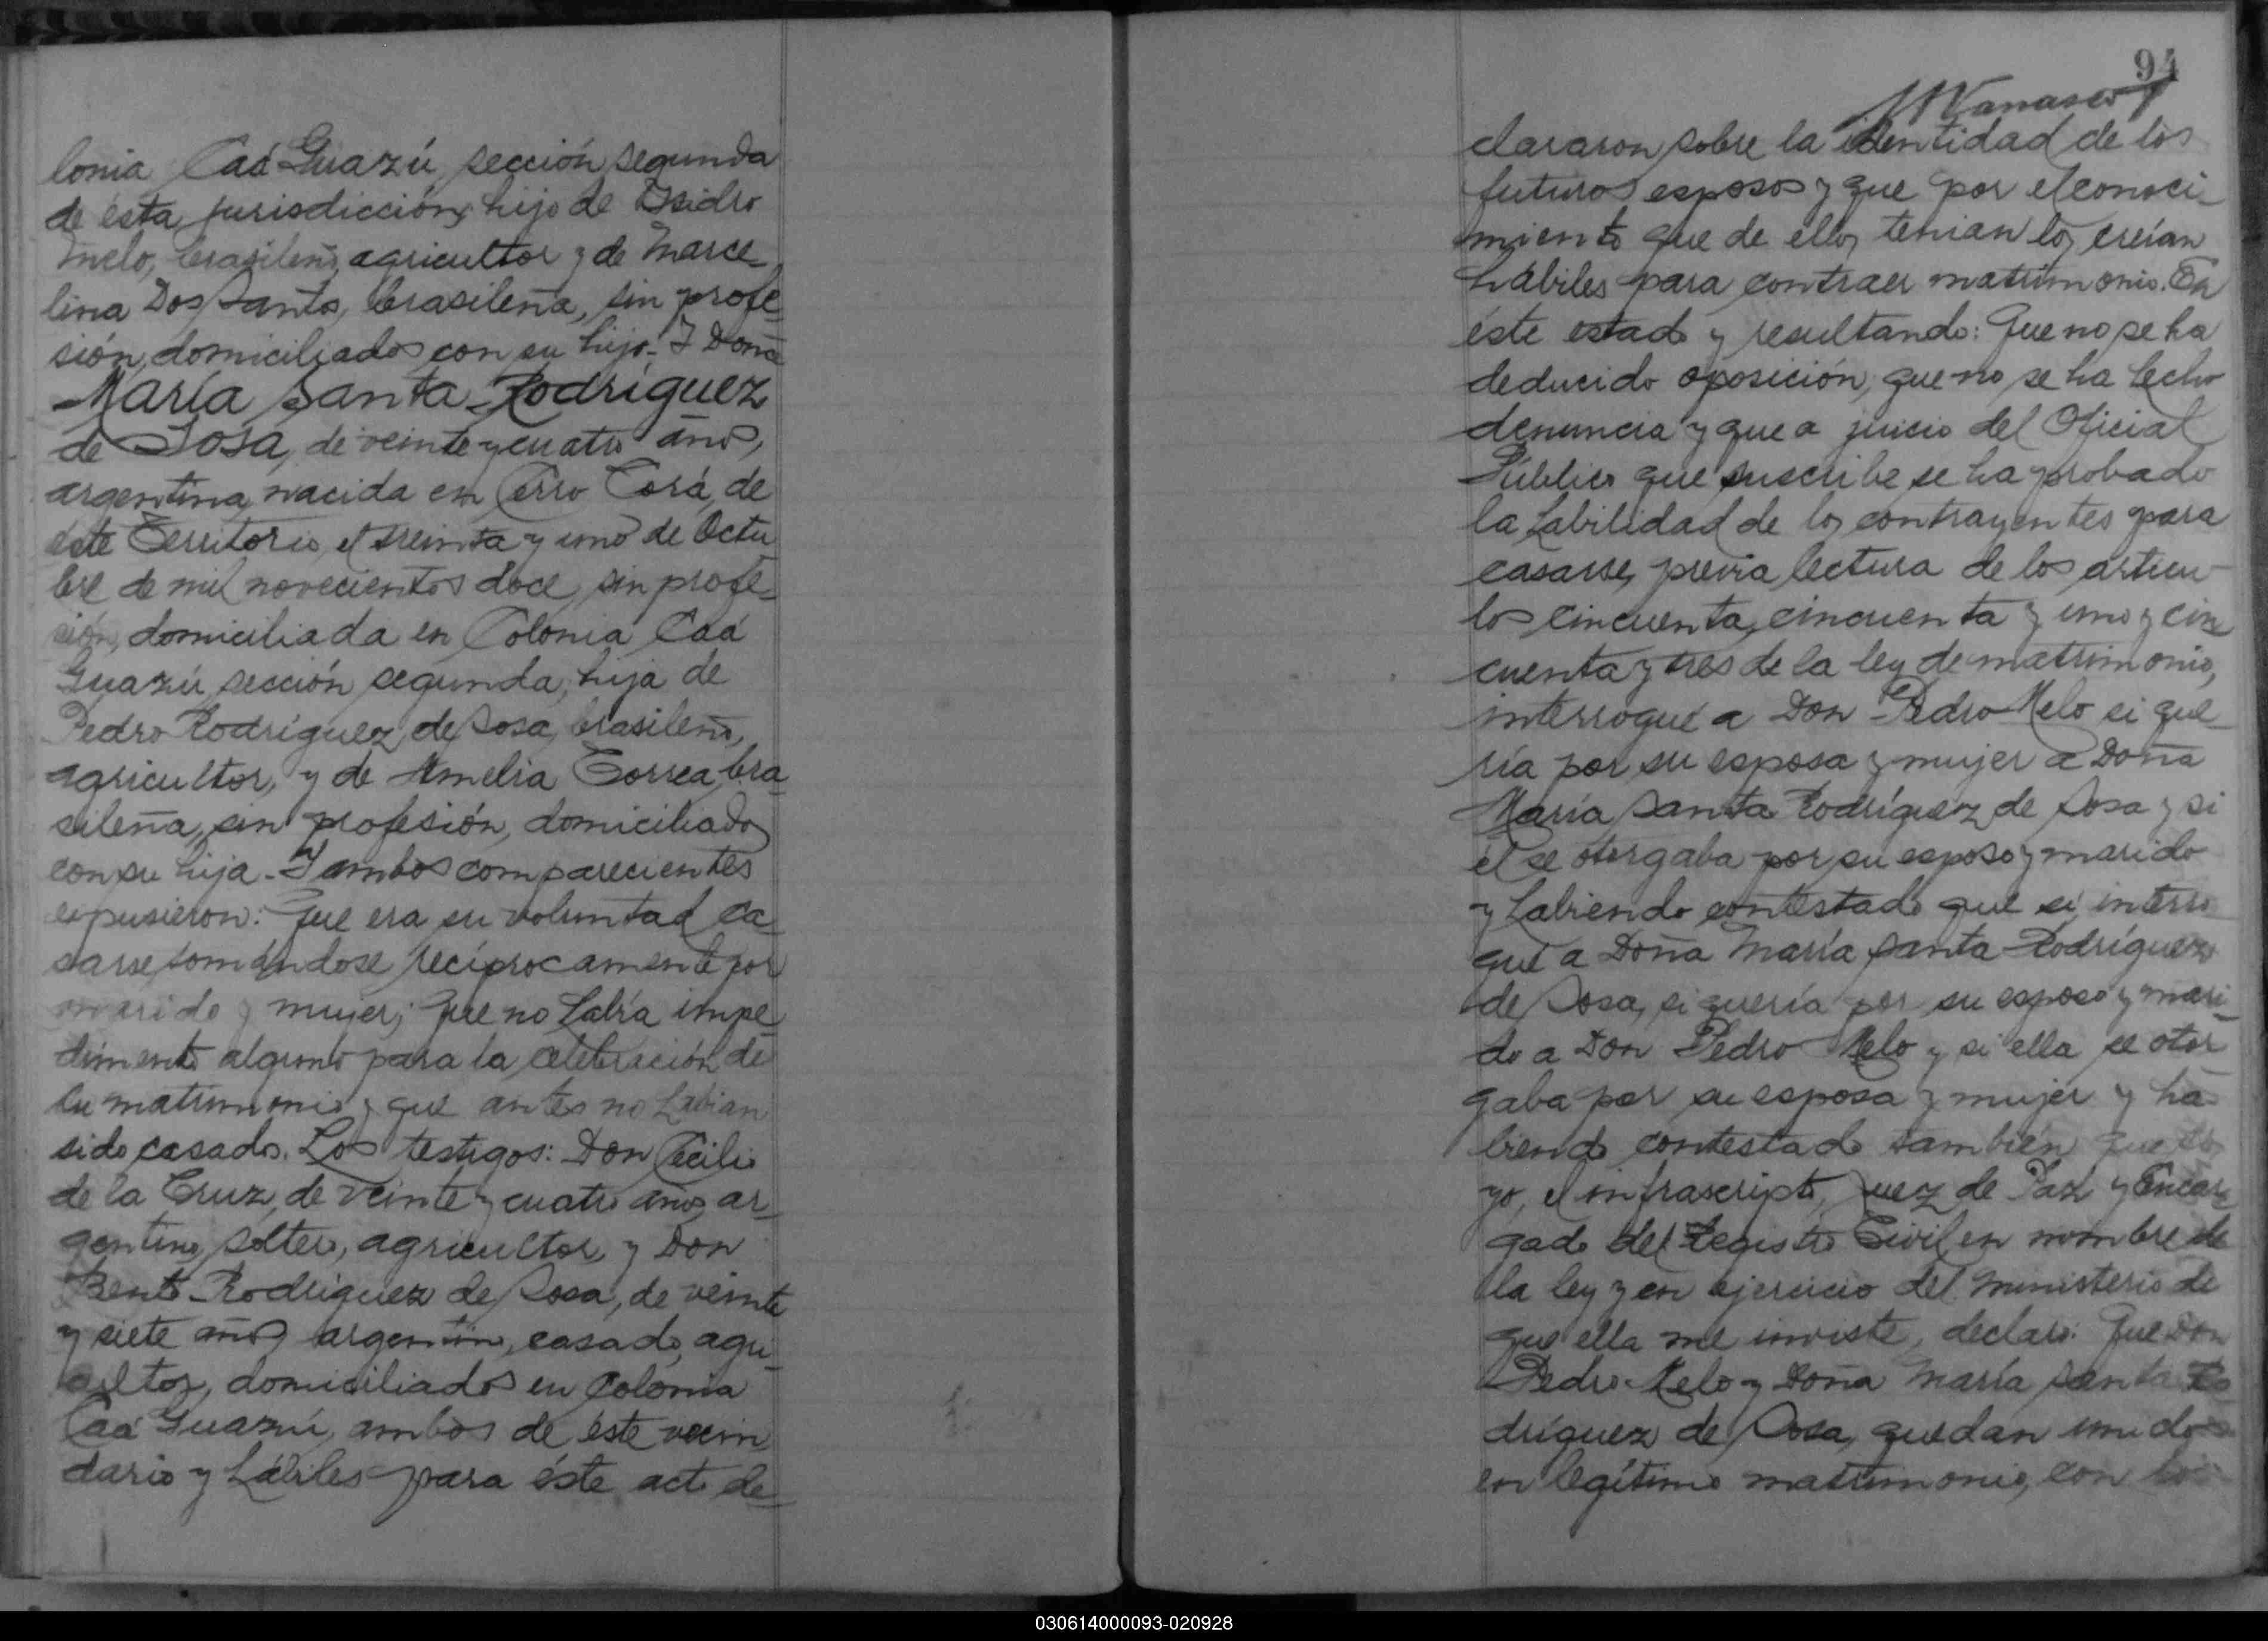 lonia Caá Guazú, sección segunda
de ésta jurisdicción, hijo de Isidro
Melo, brasileño, agricultor y de Marce-
lina Dos Santos, brasileña, sin profe-
sión, domiciliados con su hijo.- I Doña
María Santa Rodríguez
de Sosa, de veinte y cuatro años,
argentina, nacida en Cerro Corá, de
éste Territorio, el treinta y uno de Octu
bre de mil novecientos doce, sin profe-
sión, domiciliada en Colonia Caá
Guazú, sección segunda, hija de
Pedro Rodríguez de Sosa, brasileño,
agricultor, y de Amelia Correa, bra-
sileña, sin profesión, domiciliados
con su hija.- I ambos comparecientes
expusieron: Que era su voluntad ca-
sarse, tomándose recíprocamente por
marido y mujer; Que no había impe-
dimento alguno para la celebración de
su matrimonio y que antes no habian
sido casados. Los testigos: Don Cecilio
de la Cruz, de veinte y cuatro años, ar-
gentino, soltero, agricultor, y Don
Bento Rodríguez de Sosa, de veinte
y siete años, argentino, casado, agri-
cultor, domiciliados en Colonia
Caá Guazú, ambos de éste vecin
dario y hábiles para éste acto de-
94
clararon sobre la identidad de los
futuros esposos y que por el conoci-
miento que de ellos tenian los creían
hábiles para contraer matrimonio. En
éste estado y resultando: Que no se ha
deducido oposición, que no se ha hecho
denuncia y que a juicio del Oficial
Público que suscribe se ha probado
la habilidad de los contrayentes para
casarse, previa lectura de los artícu-
los cincuenta, cincuenta y uno y cin
cuenta y tres de la ley de matrimonio,
interrogué a Don Pedro Melo si que-
ría por su esposa y mujer a Doña
María Santa Rodríguez de Sosa y si
él se otorgaba por su esposo y marido
y habiendo contestado que si, interro
gué a Doña María Santa Rodríguez
de Sosa, si quería por su esposo y mari-
do a Don Pedro Melo y si ella se otor
gaba por su esposa y mujer y ha-
biendo contestado también que
yo, el infrascripto, Juez de Paz y Encar
gado del Registro Civil, en nombre de
la ley y en ejercicio del ministerio de
que ella me inviste, declaro: Que Don
Pedro Melo y Doña María Santa Ro
dríguez de Sosa, quedan unidos
en legítimo matrimonio, con los
030614000093-020928